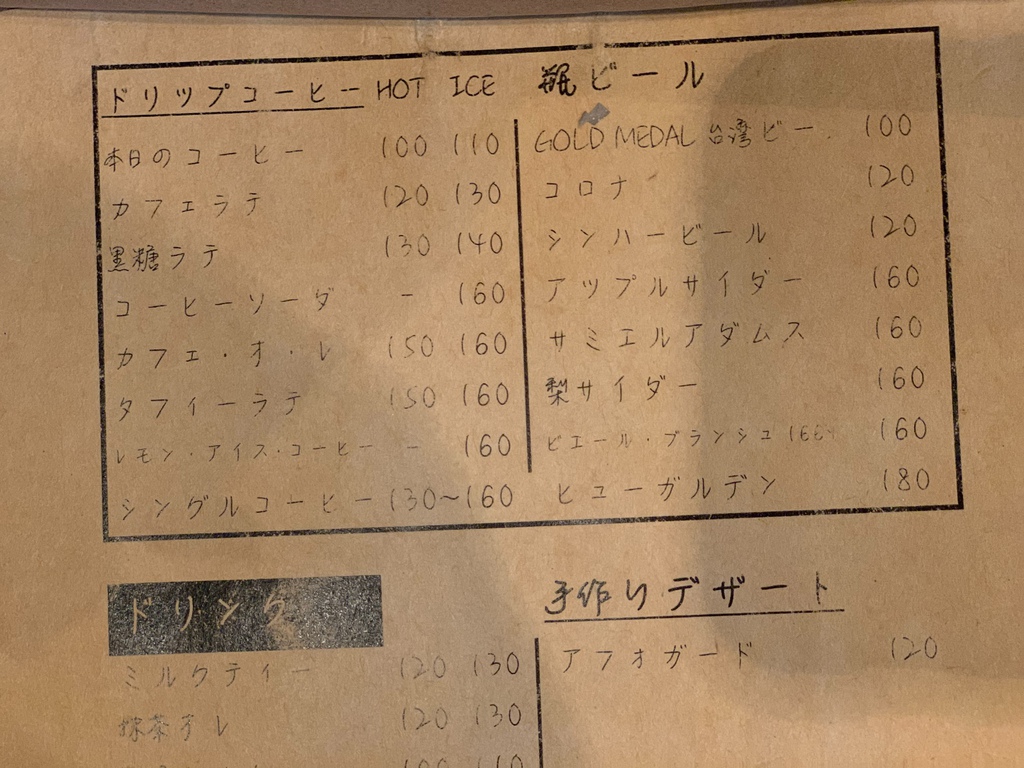 ドリップコーヒー HOT ICE
本日のコーヒー 100 110
カフェラテ 120 130
黒糖ラテ 130 140
コーヒーソーダ - 160
カフェ・オ・レ 150 160
タフィーラテ 150 160
レモン・アイス・コーヒー - 160
シングルコーヒー 130~160
瓶ビール
GOLD MEDAL 台湾ビー 100
コロナ 120
シンハービール 120
アップルサイダー 160
サミエルアダムス 160
梨サイダー 160
ピエール・ブランシュ 166 160
ヒューガルデン 180
ドリンク
ミルクティー 120 130
抹茶オレ 120 130
手作りデザート
アフォガード 120